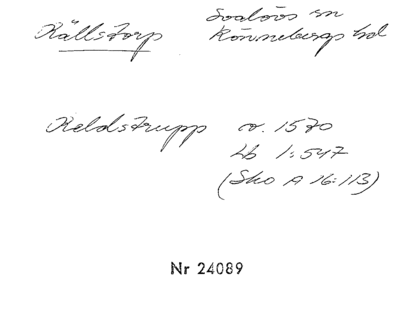 Källstorp Svalövs sn
Rönnebergs hd
Keldstrupp co. 1570
Lb 1:547
(Sko A 16:113)
Nr 24089